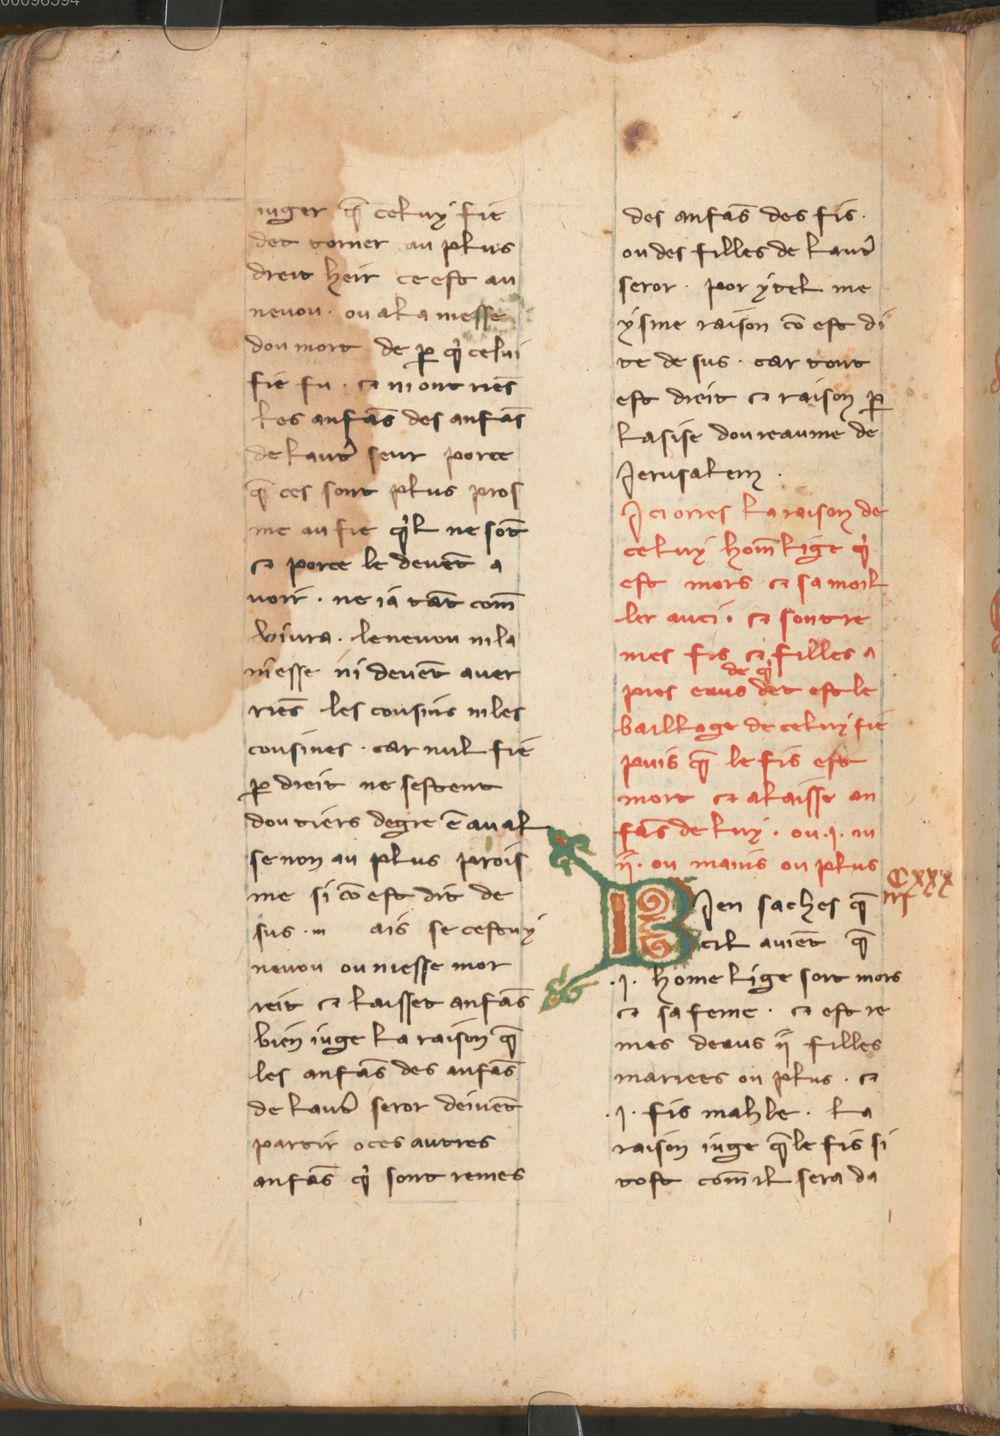 iuger q̄ celuy fie
det torner au plus
dreit heir ce est au
nevou · ou a la niesse
dou mort de p̲ q̇ celui
fie fu · ⁊ ni ont riēs
les anfās des anfās
de lautˀ seur porce
q̄ ces sont plus pros
me au fie q̇l ne sōt
⁊ porce le devēt a
voir · ne iā tāt com̄
vivra · le nevou ni la
niesse ni devēt aver
riēs les cousins ni les
cousines · car nul fie
p̲ dreit ne sestent
dou tiers degre ē aval
se non au plus prois
me si cō est dit de
sus · m ais se cestuy
nevou ou niesse mor
reit ⁊ laisset anfās
bien iuge la raison q̄
les anfās des anfās
de lautˀ seror deivēt
partir o ces autres
anfās q̇ sont remes
des anfās des fis ·
ou des filles de lautˀ
seror · por ytel me
ysme raison cō est di
te de sus · car tout
est dreit ⁊ raison p̲
lasise dou reaume de
Jerusalem ·
Ici orres la raison de
celuy hom̄ lige q̇
est mors ⁊ sa moil
ler auci · ⁊ sont re
mes fis ⁊ filles a
pres eaus de q̇ det est le
baillage de celuy fie
puis q̄ le fis est
mort ⁊ a laisse an
fās de luy · ou · I · ou
ii · ou mains ou plus
Bien saches q̄ Cxxx
cil avient q̄
· I · home lige soit mors
⁊ sa feme · ⁊ est re
mes deaus ii filles
mariees ou plus · ⁊
· I · fis mahle · La
raison iuge q̄ le fis si
tost com̄ il sera da